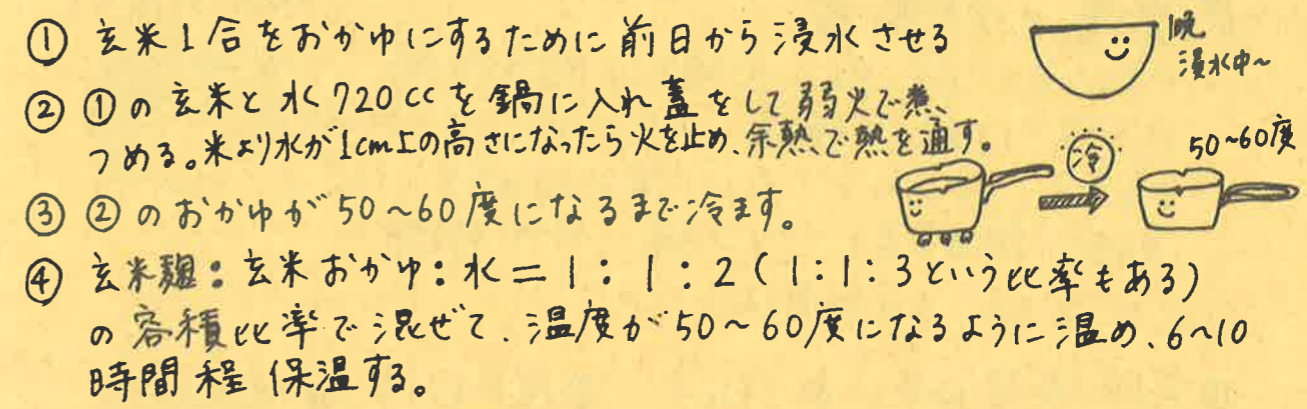 ① 玄米1合をおかゆにするために前日から浸水させる
1晩
浸水中~
② ①の玄米と水720ccを鍋に入れ蓋をして弱火で煮
つめる。米より水が1cm上の高さになったら火を止め、余熱で熱を通す。
冷
50~60度
③ ②のおかゆが50~60度になるまで冷ます。
④ 玄米麹:玄米おかゆ:水=1:1:2(1:1:3という比率もある)
の容積比率で混ぜて、温度が50~60度になるように温め、6~10
時間程保温する。